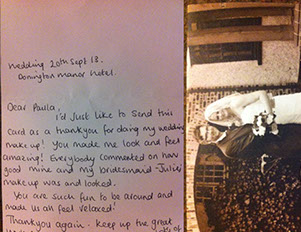 Wedding 20th Sept 13.
Donington Manor Hotel.
Dear Paula,
I'd Just like to Send this
card as a thankyou for doing my wedding
make up! You made me look and feel
amazing! Everybody commented on how
good mine and my bridesmaid 'Julies'
makeup was and looked.
You are such fun to be around and
made us all feel relaxed!
Thankyou again - keep up the great